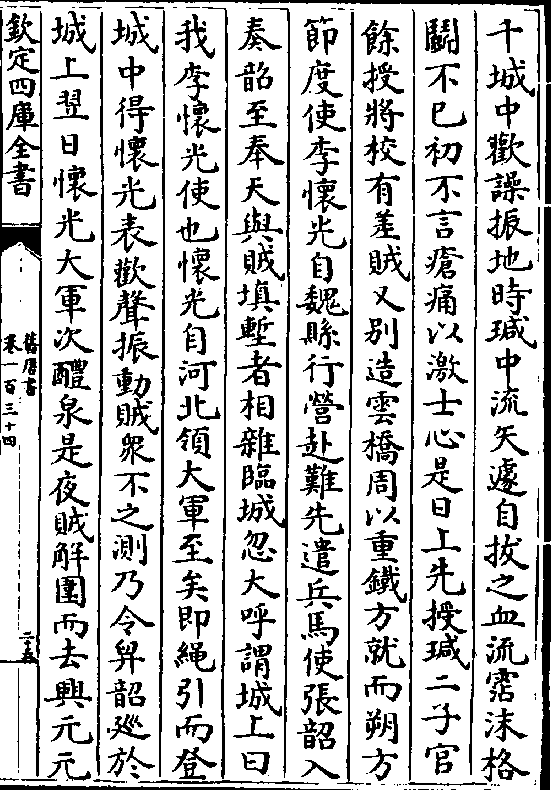 千城中歡譟振地時瑊中流矢遽自拔之血流霑沫格
鬭不已初不言瘡痛以激士心是日上先授瑊二子官
餘授將校有差賊又别造雲橋周以重鐵方就而朔方
節度使李懷光自魏縣行營赴難先遣兵馬使張韶入
奏韶至奉天與賊填塹者相雜臨城忽大呼謂城上曰
我李懷光使也懷光自河北領大軍至矣即繩引而登
城中得懷光表歡聲振動賊衆不之測乃令舁韶廵於
城上翌日懷光大軍次醴泉是夜賊解圍而去興元元
欽定四庫全書
舊唐書
卷一百三十四